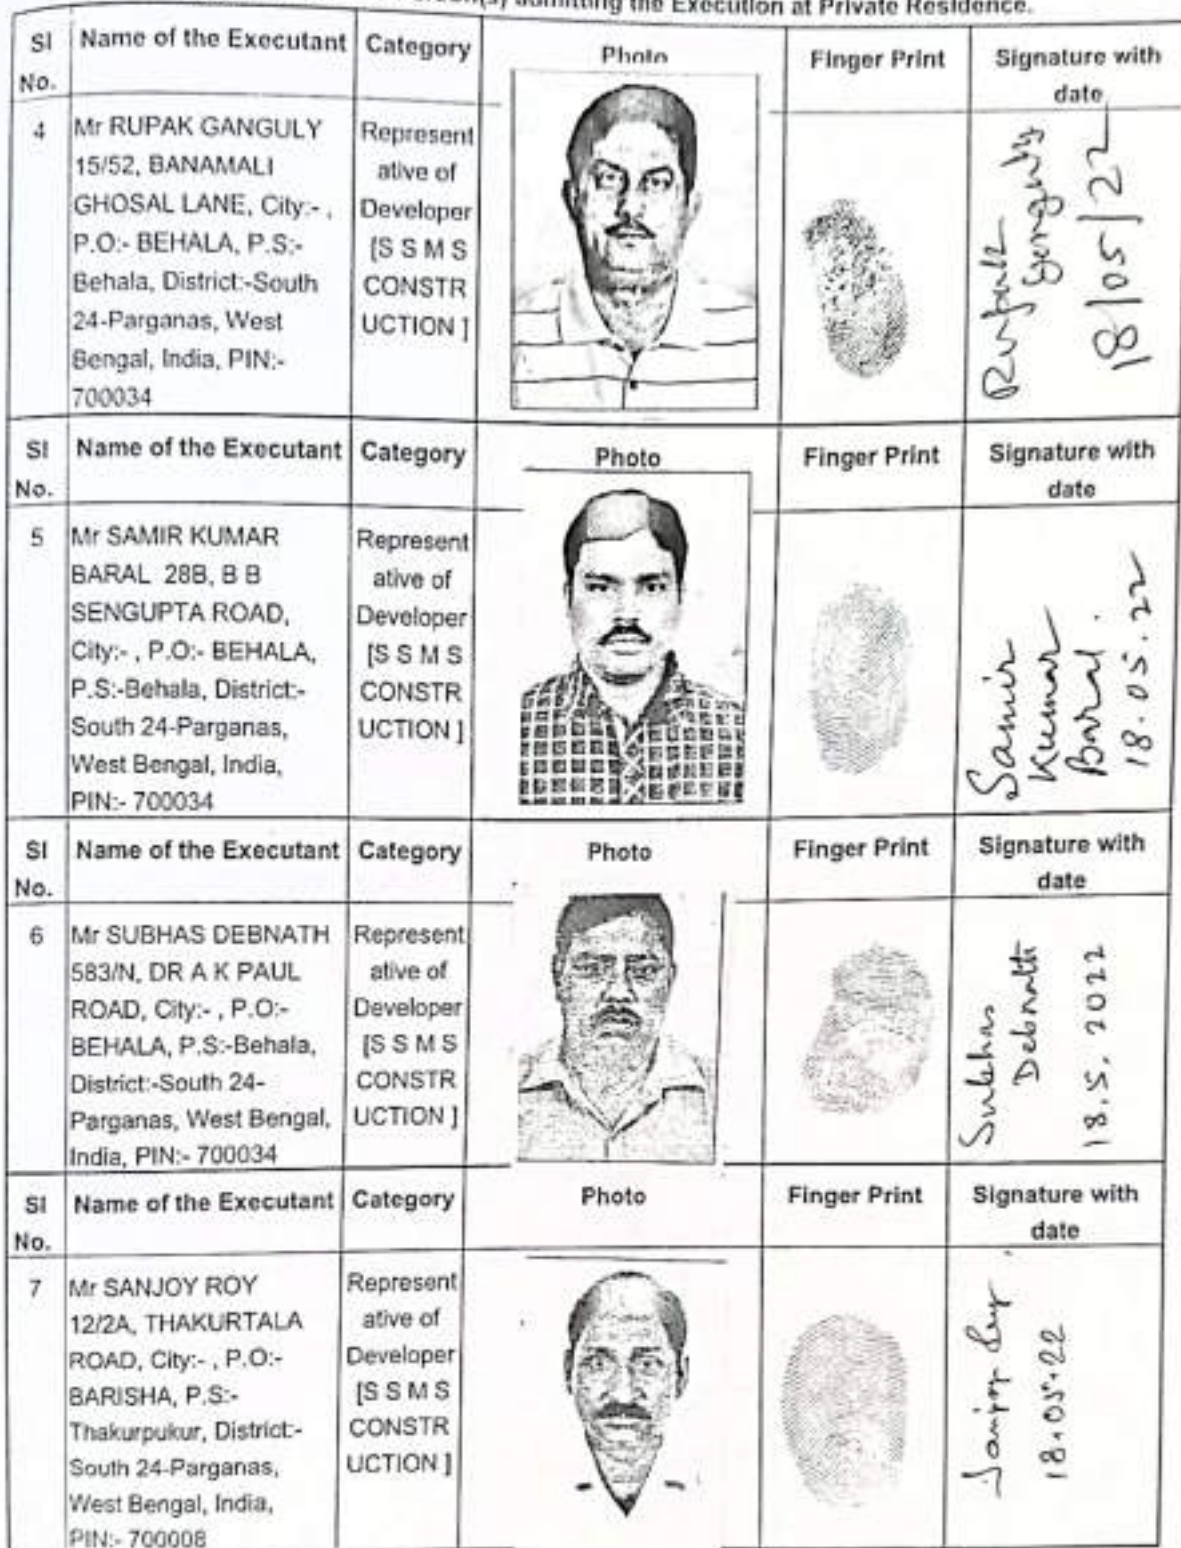 admitting the Execution at Private Residence.
Sl No. Name of the Executant Category Photo Finger Print Signature with date
4
Mr RUPAK GANGULY
15/52, BANAMALI
GHOSAL LANE, City:- ,
P.O:- BEHALA, P.S:-
Behala, District:-South
24-Parganas, West
Bengal, India, PIN:-
700034
Represent
ative of
Developer
[S S M S
CONSTR
UCTION ]
Rupak
Ganguly
18/05/22
Sl No. Name of the Executant Category Photo Finger Print Signature with date
5
Mr SAMIR KUMAR
BARAL 28B, B B
SENGUPTA ROAD,
City:- , P.O:- BEHALA,
P.S:-Behala, District:-
South 24-Parganas,
West Bengal, India,
PIN:- 700034
Represent
ative of
Developer
[S S M S
CONSTR
UCTION ]
Samir
Kumar
Baral.
18.05.22
Sl No. Name of the Executant Category Photo Finger Print Signature with date
6
Mr SUBHAS DEBNATH
583/N, DR A K PAUL
ROAD, City:- , P.O:-
BEHALA, P.S:-Behala,
District:-South 24-
Parganas, West Bengal,
India, PIN:- 700034
Represent
ative of
Developer
[S S M S
CONSTR
UCTION ]
Subhas
Debnath
18.5.2022
Sl No. Name of the Executant Category Photo Finger Print Signature with date
7
Mr SANJOY ROY
12/2A, THAKURTALA
ROAD, City:- , P.O:-
BARISHA, P.S:-
Thakurpukur, District:-
South 24-Parganas,
West Bengal, India,
PIN:- 700008
Represent
ative of
Developer
[S S M S
CONSTR
UCTION ]
Sanjoy Roy
18.05.22